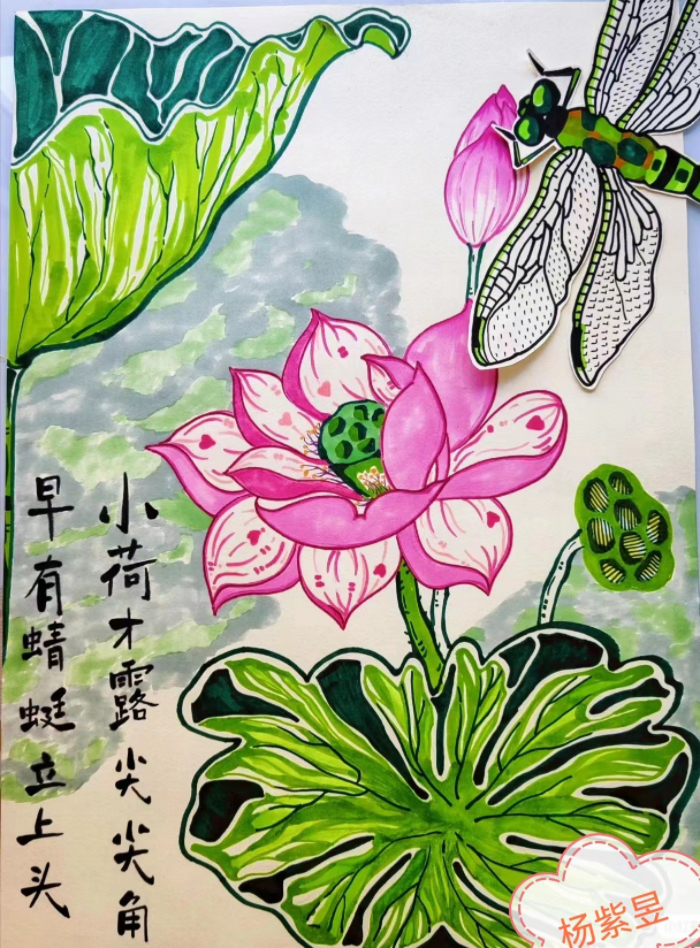 小荷才露尖尖角
早有蜻蜓立上头
杨紫昱